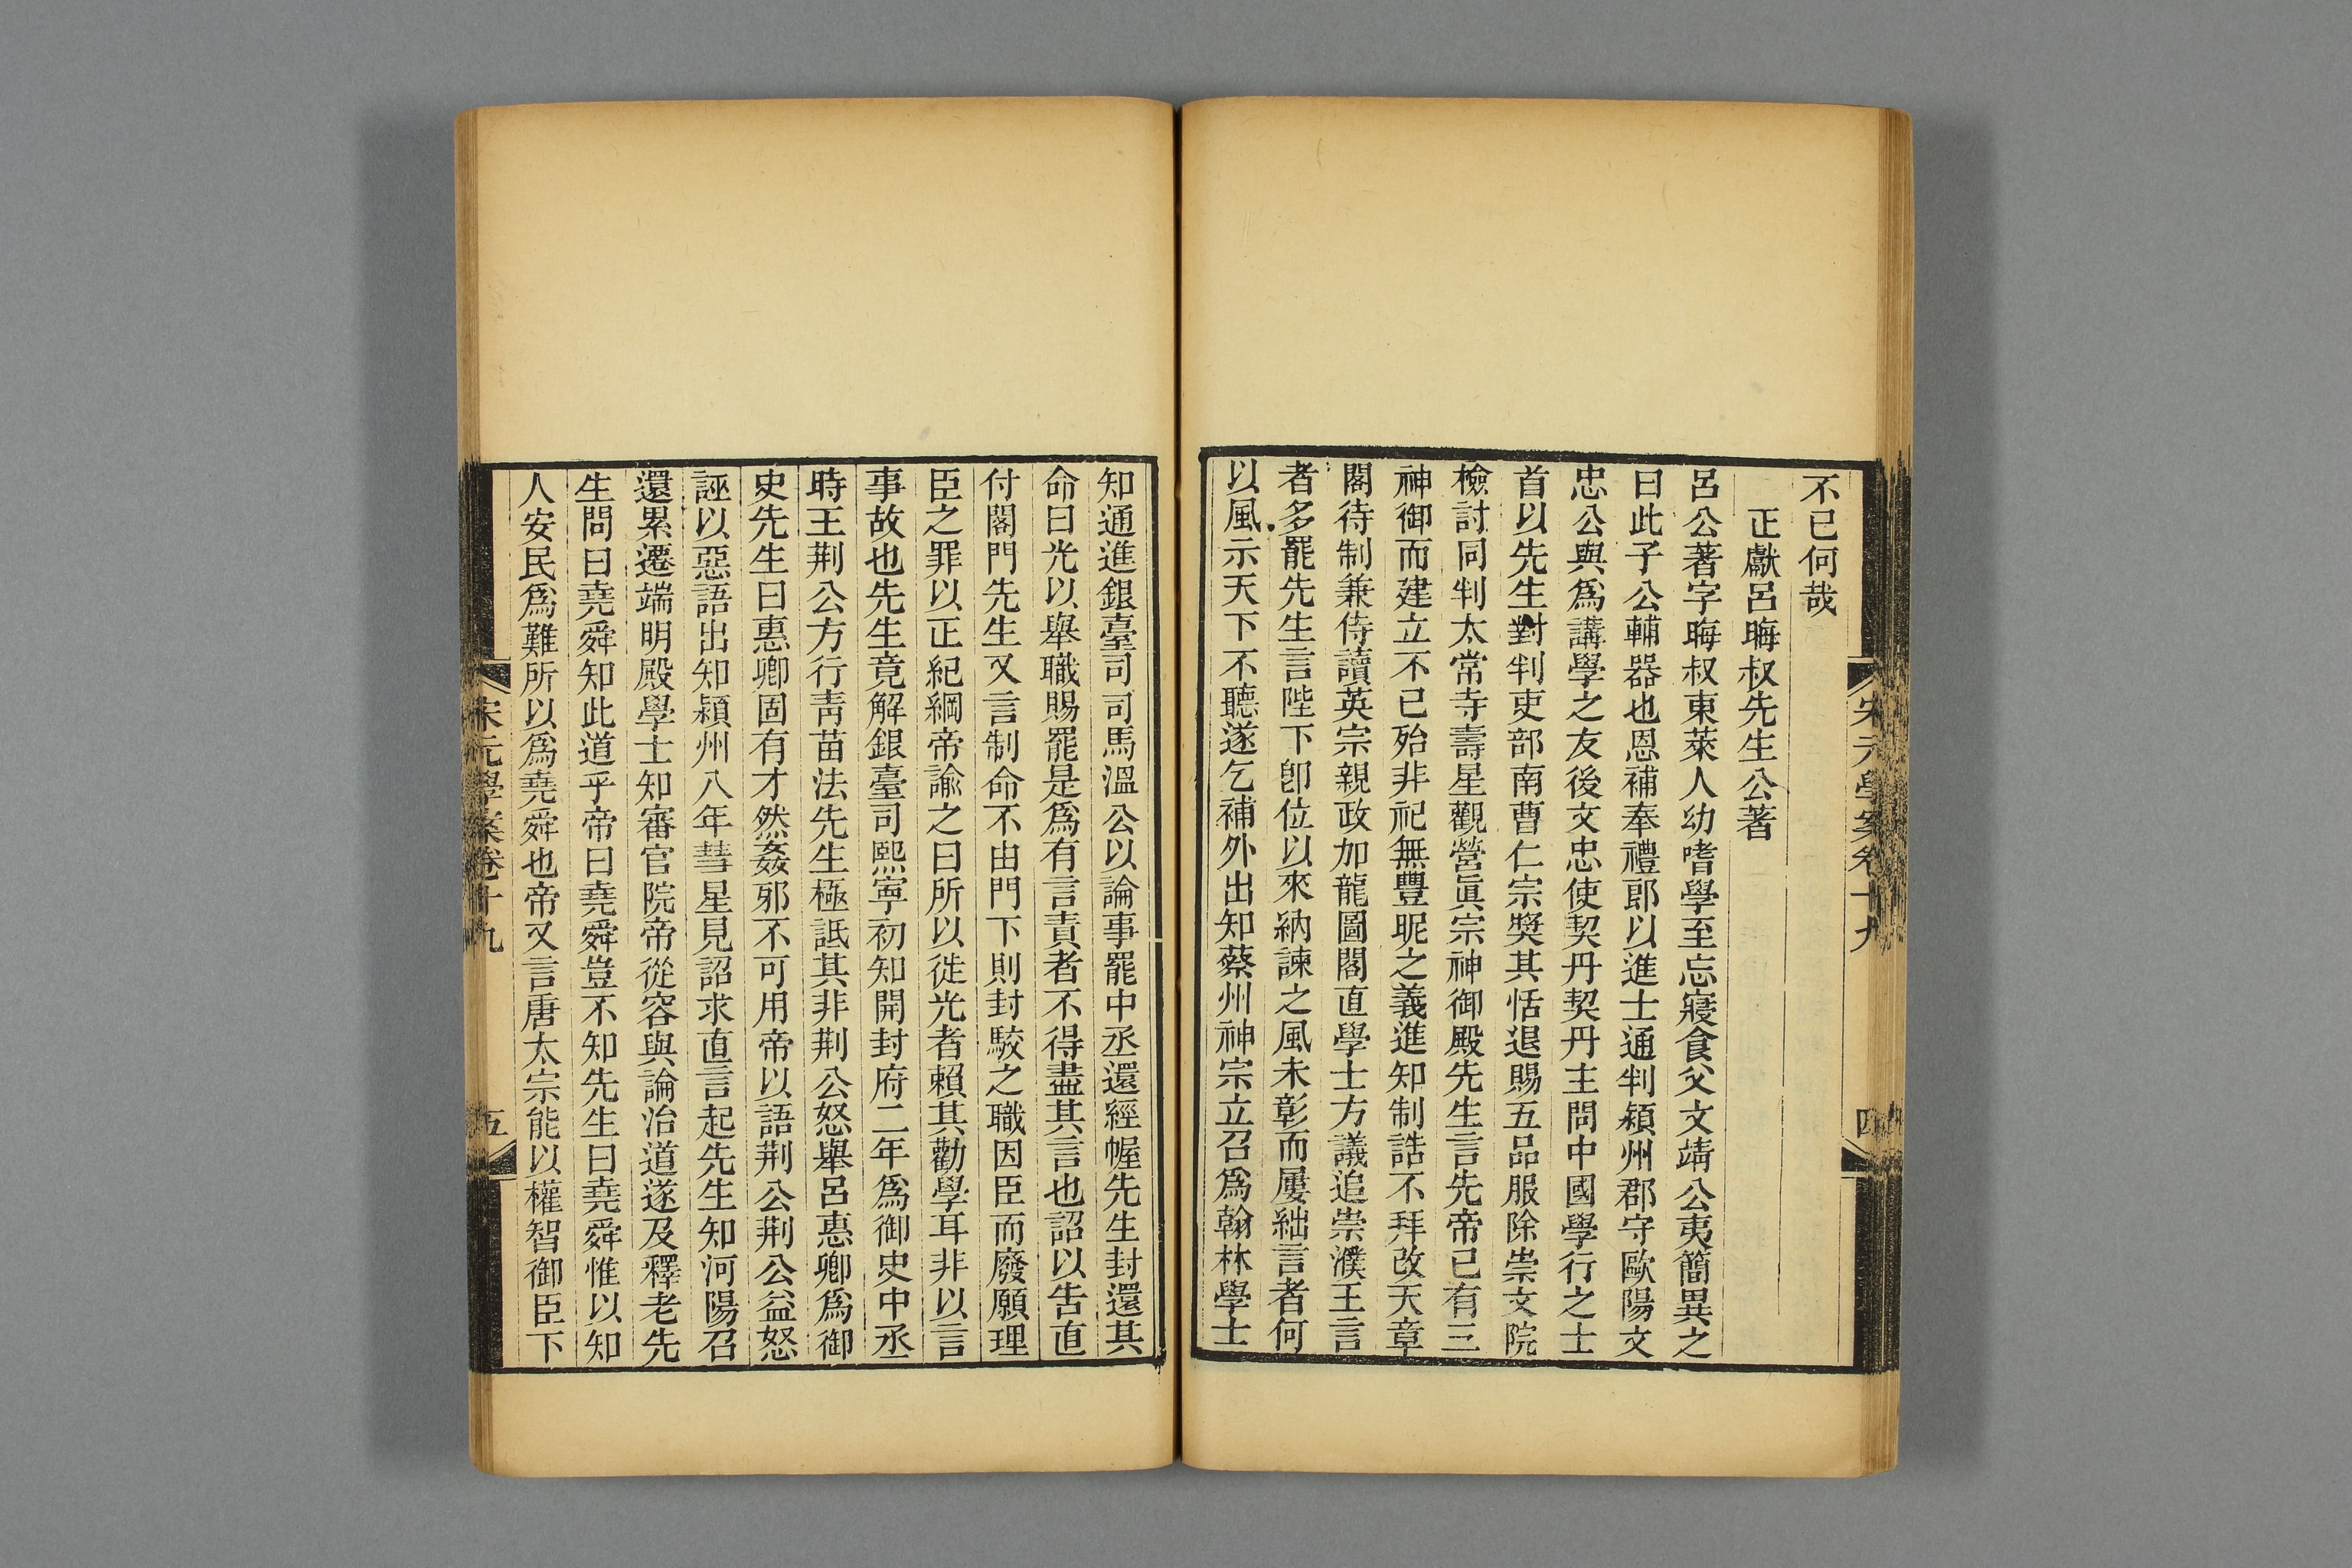 宋元學案卷十九
四
不已何哉
正獻呂晦叔先生公著
呂公著字晦叔東萊人幼嗜學至忘寢食父文靖公夷簡異之
曰此子公輔器也恩補奉禮郎以進士通判潁州郡守歐陽文
忠公與爲講學之友後文忠使契丹契丹主問中國學行之士
首以先生對判吏部南曹仁宗獎其恬退賜五品服除崇文院
檢討同判太常寺壽星觀營眞宗神御殿先生言先帝已有三
神御而建立不已殆非祀無豐昵之義進知制誥不拜改天章
閣待制兼侍讀英宗親政加龍圖閣直學士方議追崇濮王言
者多罷先生言陛下卽位以來納諫之風未彰而屢絀言者何
以風示天下不聽遂乞補外出知蔡州神宗立召爲翰林學士
知通進銀臺司司馬溫公以論事罷中丞還經幄先生封還其
命曰光以舉職賜罷是爲有言責者不得盡其言也詔以告直
付閣門先生又言制命不由門下則封駮之職因臣而廢願理
臣之罪以正紀綱帝諭之曰所以徙光者賴其勸學耳非以言
事故也先生竟解銀臺司熙寧初知開封府二年爲御史中丞
時王荆公方行靑苗法先生極詆其非荆公怒舉呂惠卿爲御
史先生曰惠卿固有才然姦邪不可用帝以語荆公荆公益怒
誣以惡語出知潁州八年彗星見詔求直言起先生知河陽召
還累遷端明殿學士知審官院帝從容與論治道遂及釋老先
生問曰堯舜知此道乎帝曰堯舜豈不知先生曰堯舜惟以知
人安民爲難所以爲堯舜也帝又言唐太宗能以權智御臣下
宋元學案卷十九
五